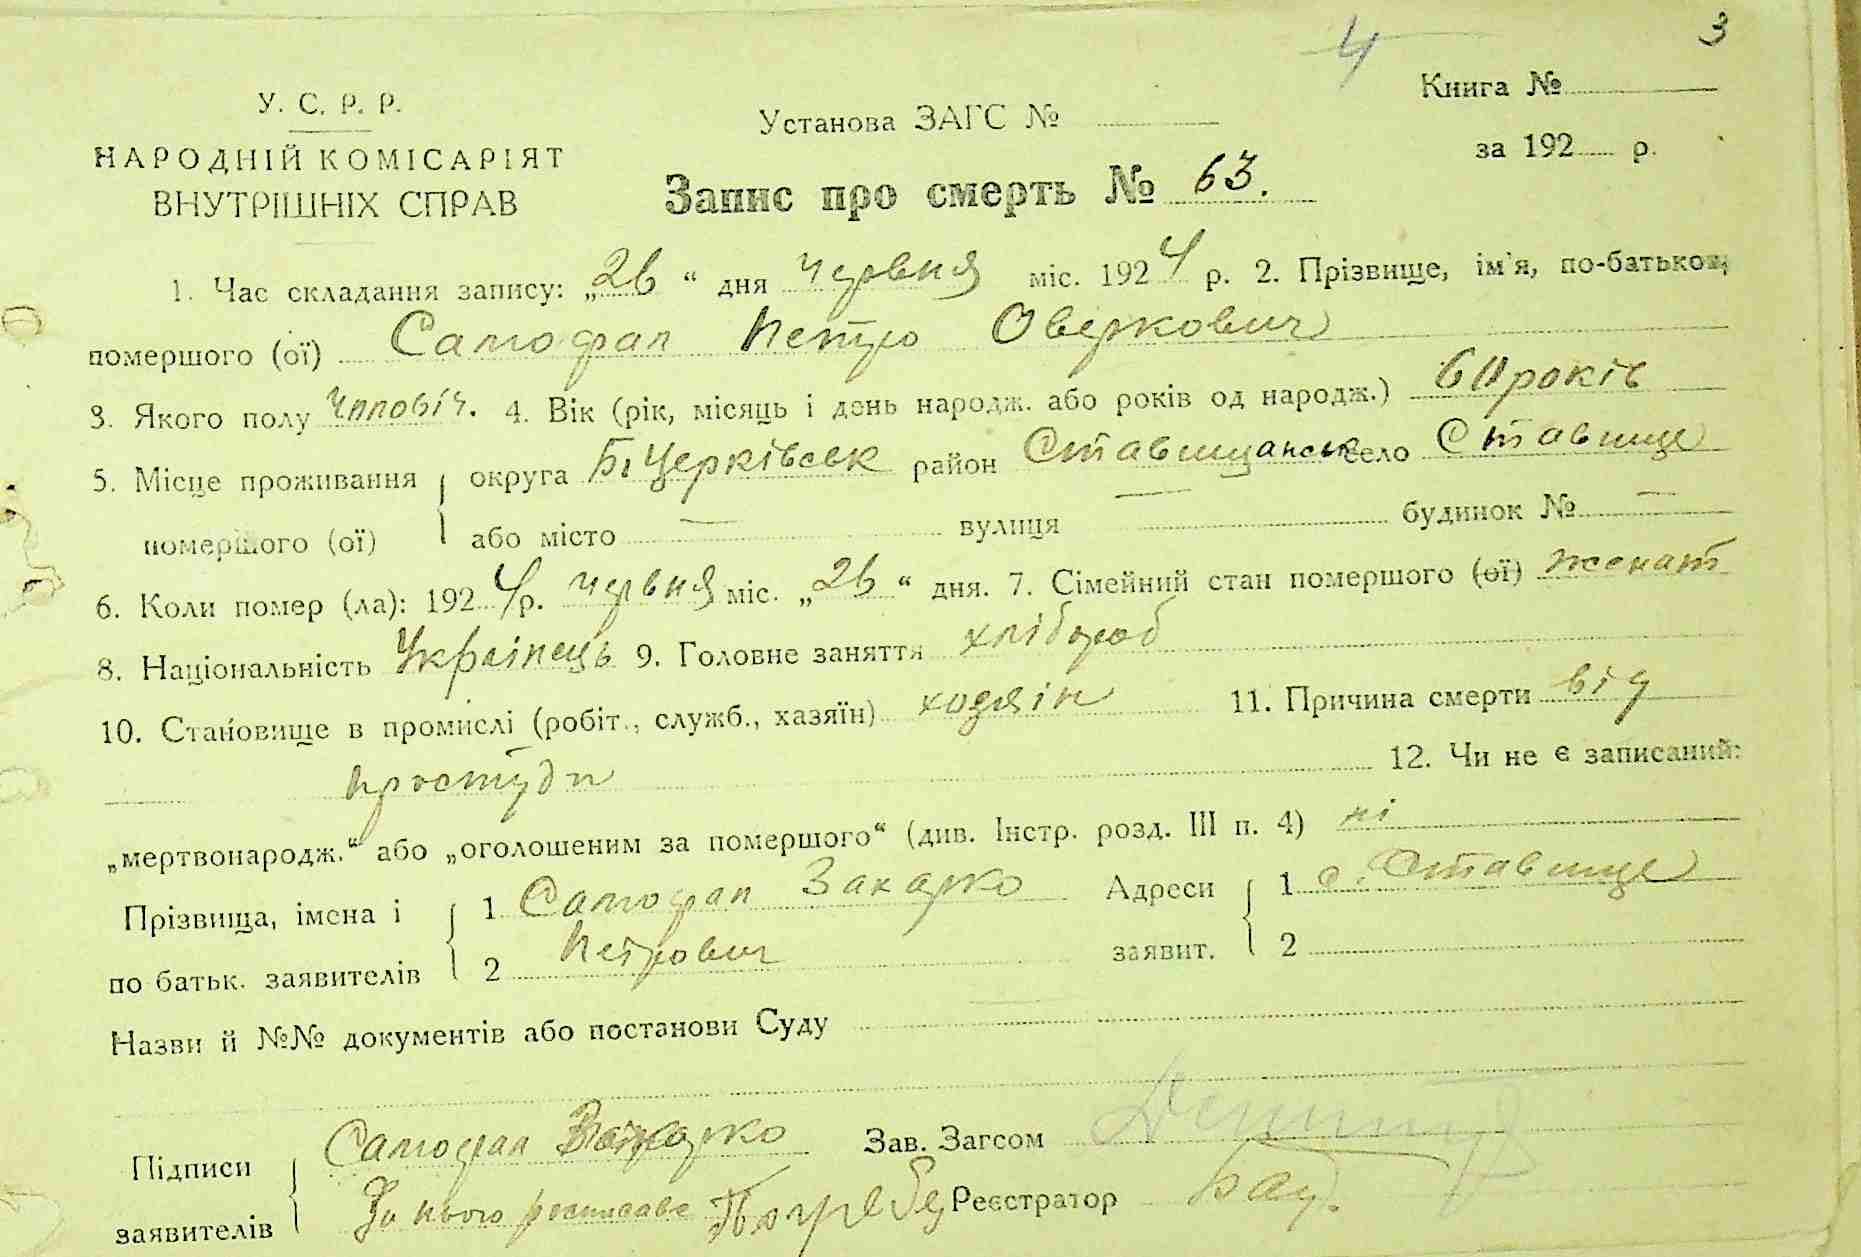 4 3
У. С. Р. Р.
НАРОДНІЙ КОМІСАРІЯТ
ВНУТРІШНІХ СПРАВ
Установа ЗАГС №
Книга №
за 192 р.
Запис про смерть № 63.
1. Час складання запису: „26“ дня червня міс. 1924 р. 2. Прізвище, ім'я, по-батькові
помершого (ої) Самофал Петро Оверкович
3. Якого полу чоловіч. 4. Вік (рік, місяць і день народж. або років од народж.) 60 років
5. Місце проживання помершого (ої) округа Б.Церківськ район Ставищанськ село Ставище
або місто — вулиця — будинок № —
6. Коли помер (ла): 1924 р. червня міс. „26“ дня. 7. Сімейний стан помершого (ої) женат
8. Національність Українець 9. Головне заняття хлібороб
10. Становище в промислі (робіт., служб., хазяїн) хозяін 11. Причина смерти від
простуди 12. Чи не є записаний:
„мертвонародж.“ або „оголошеним за помершого“ (див. Інстр. розд. III п. 4) ні
Прізвища, імена і по батьк. заявителів 1 Самофал Захарко Адреси заявит. 1 с. Ставище
2 Петрович 2
Назви й №№ документів або постанови Суду
Підписи заявителів Самофал Захарко Зав. Загсом
За нього росписавс Реєстратор